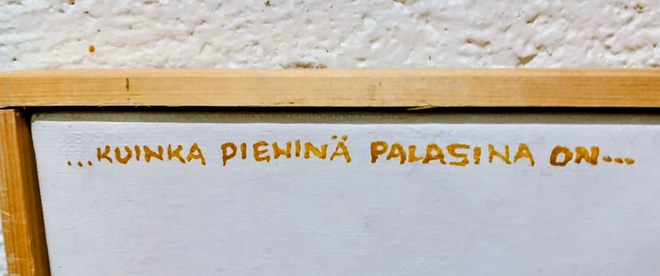 ...KUINKA PIENINÄ PALASINA ON...